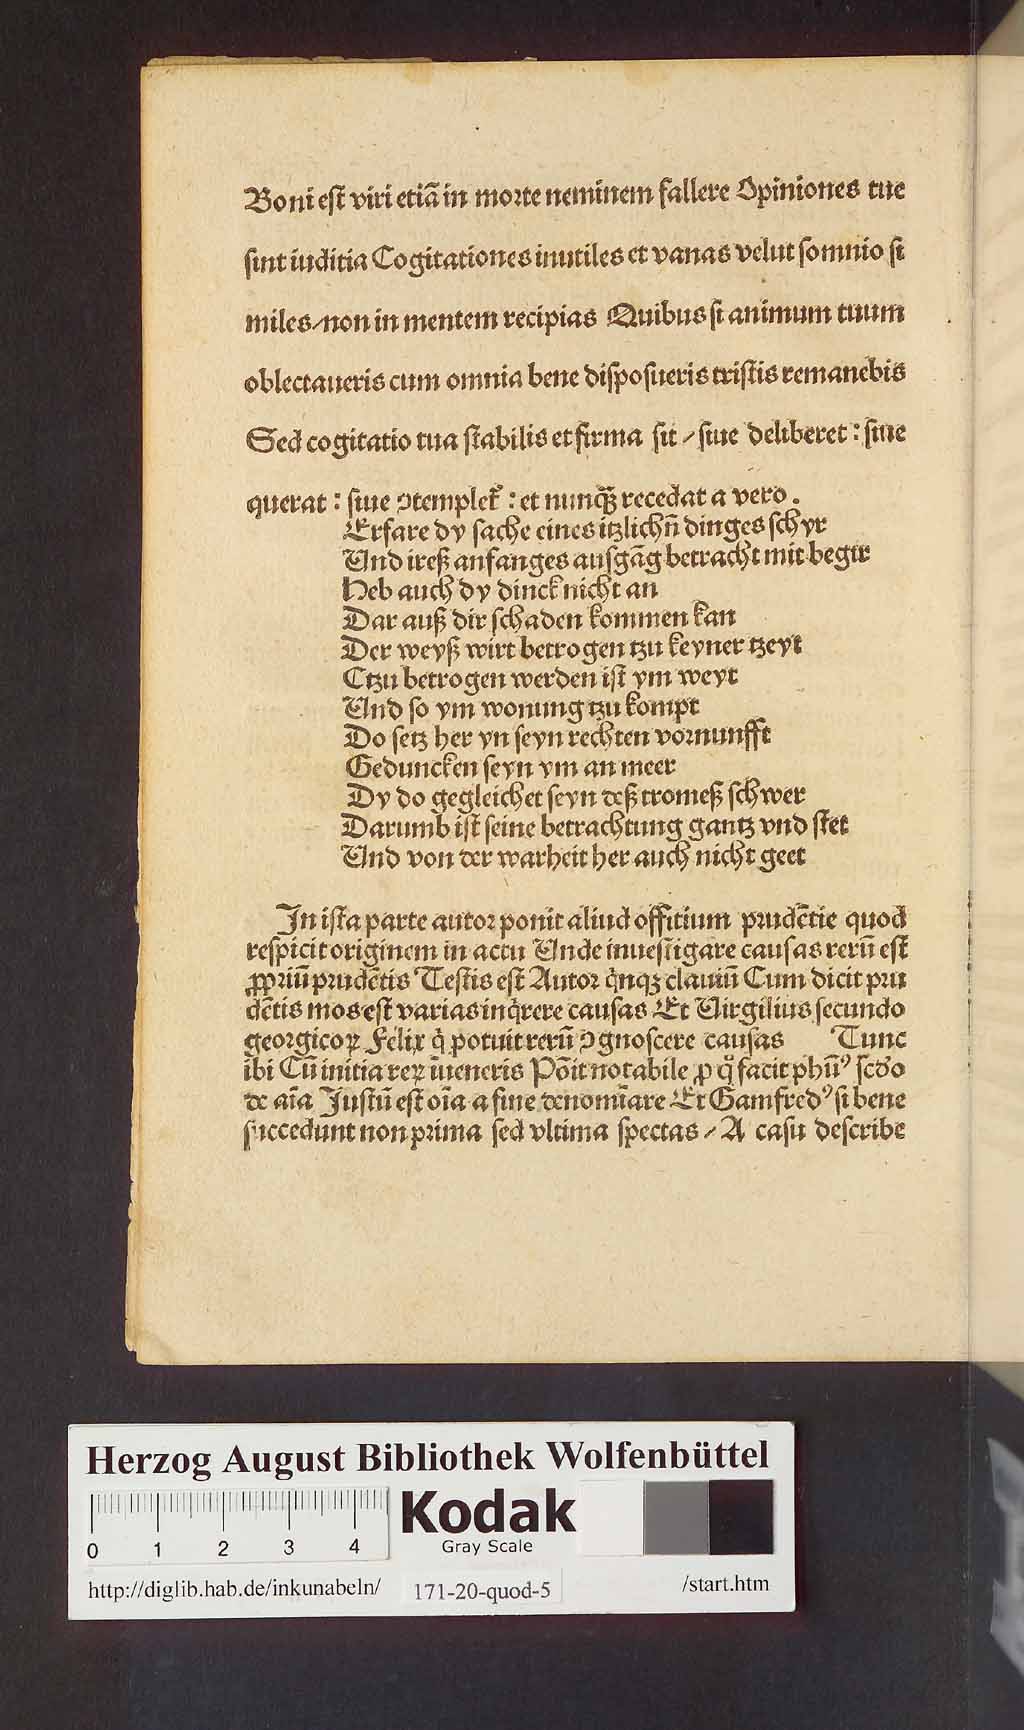 Boni eſt viri etiā in morte neminem fallere Opiniones tue
ſint iuditia Cogitationes inutiles et vanas velut ſomnio ſi
miles/non in mentem recipias Quibus ſi animum tuum
oblectaueris cum omnia bene diſpoſueris triſtis remanebis
Sed cogitatio tua ſtabilis et firma ſit / ſiue deliberet : ſiue
querat : ſiue ꝯtemplet᷑ : et nunqꝫ recedat a vero .
Erfare dy ſache eines itzlichn̄ dinges ſchyr
Und ireß anfanges auſgāg betracht mit begir
Heb auch dy dinck nicht an
Dar auß dir ſchaden kommen kan
Der weyß wirt betrogen tzu keyner tzeyt
Ctzu betrogen werden iſt ym weyt
Und ſo ym wonung tzu kompt
Do ſetz her yn ſeyn rechten vornunfft
Geduncken ſeyn ym an meer
Dy do gegleichet ſeyn deß tromeß ſchwer
Darumb iſt ſeine betrachtung gantz vnd ſtet
Und von der warheit her auch nicht geet
In iſta parte autor ponit aliud offitium prudētie quod
reſpicit originem in actu Unde inueſtigare cauſas rerū eſt
ꝓpriū prudētis Teſtis eſt Autor q̇nqꝫ clauiū Cum dicit pru
dētis mos eſt varias inq̇rere cauſas Et Uirgilius ſecundo
georgicoꝝ Felix q̇ potuit rerū ꝯgnoſcere cauſas Tunc
ibi Cū initia reꝝ īueneris Pōit notabile ꝓ qͦ facit ph̄uꝰ ſcd̓o
de aīa Juſtū eſt oīa a fine denomīare Et Gamfredꝰ ſi bene
ſuccedunt non prima ſed vltima ſpectas / A caſu deſcribe
Herzog August Bibliothek Wolfenbüttel
0 1 2 3 4
Kodak
Gray Scale
http://diglib.hab.de/inkunabeln/ 171-20-quod-5 /start.htm